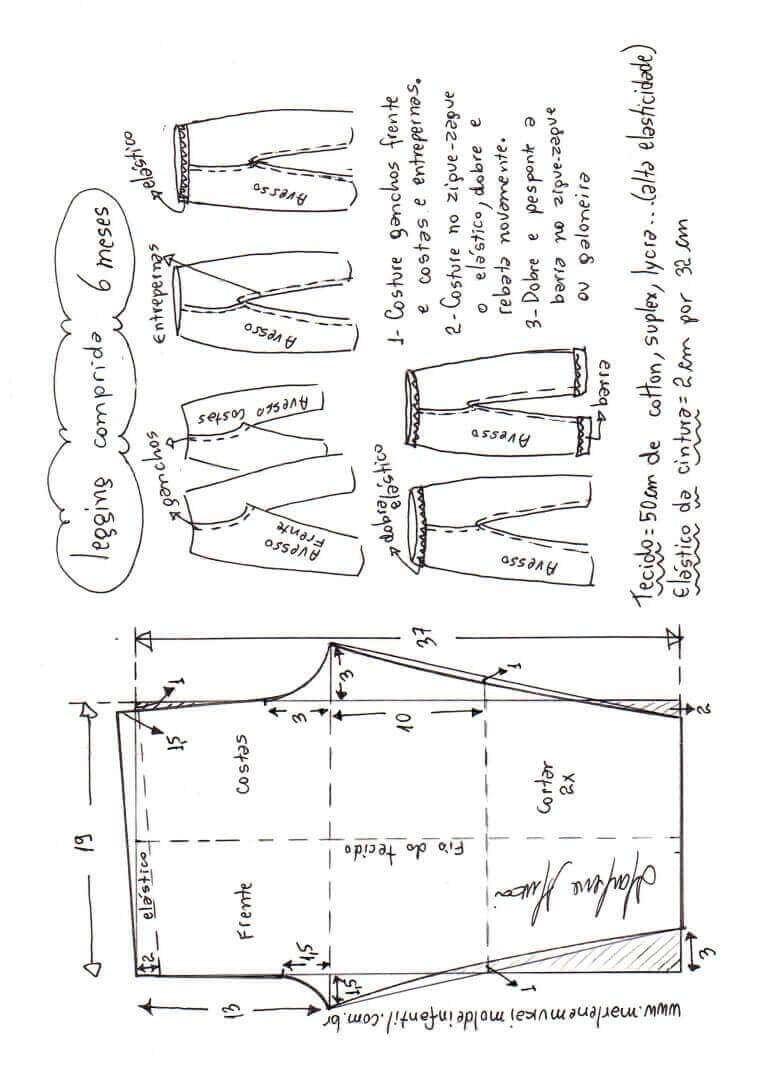 legging comprida 6 meses
ganchos
Avesso
Frente
Avesso Costas
Entrepernas
Avesso
elástico
Avesso
dobra
elástico
Avesso
Avesso
barra
1- Costure ganchos frente
e costas e entrepernas.
2- Costure no zigue-zague
o elástico, dobre e
rebata novamente.
3- Dobre e pesponte a
barra no zigue-zague
ou galoneira
Tecido = 50cm de cotton, suplex, lycra... (alta elasticidade)
Elástico da cintura = 2cm por 32cm
19
37
1
1,5
3
3
10
1
2
Costas
Cortar
2x
Fio do tecido
elástico
Frente
Marlene Mukai
2
1,5
1,5
13
1
3
www.marlenemukaimoldeinfantil.com.br